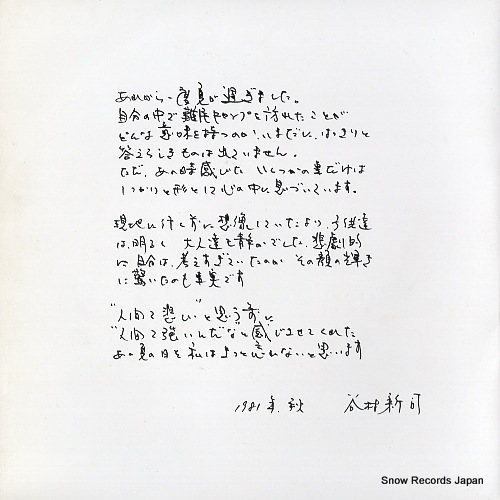 あれから一度夏が過ぎました。
自分の中で難民キャンプを訪れたことが
どんな意味を持つのか、いまだに、はっきりと
答えらしきものは出ていません。
ただ、あの時感じた いくつかの事だけは
しっかりと形として心の中に息づいています。
現地に行く前に想像していたより、子供達
は、明るく 大人達も静かでした。悲劇的
に自分は、考えすぎていたのか その顔の輝き
に驚いたのも事実です
"人間て悲しい"と思う前に
"人間て強いんだな"と感じさせてくれた
あの夏の日を私はきっと忘れないと思います
1981年、秋 谷村新司
Snow Records Japan